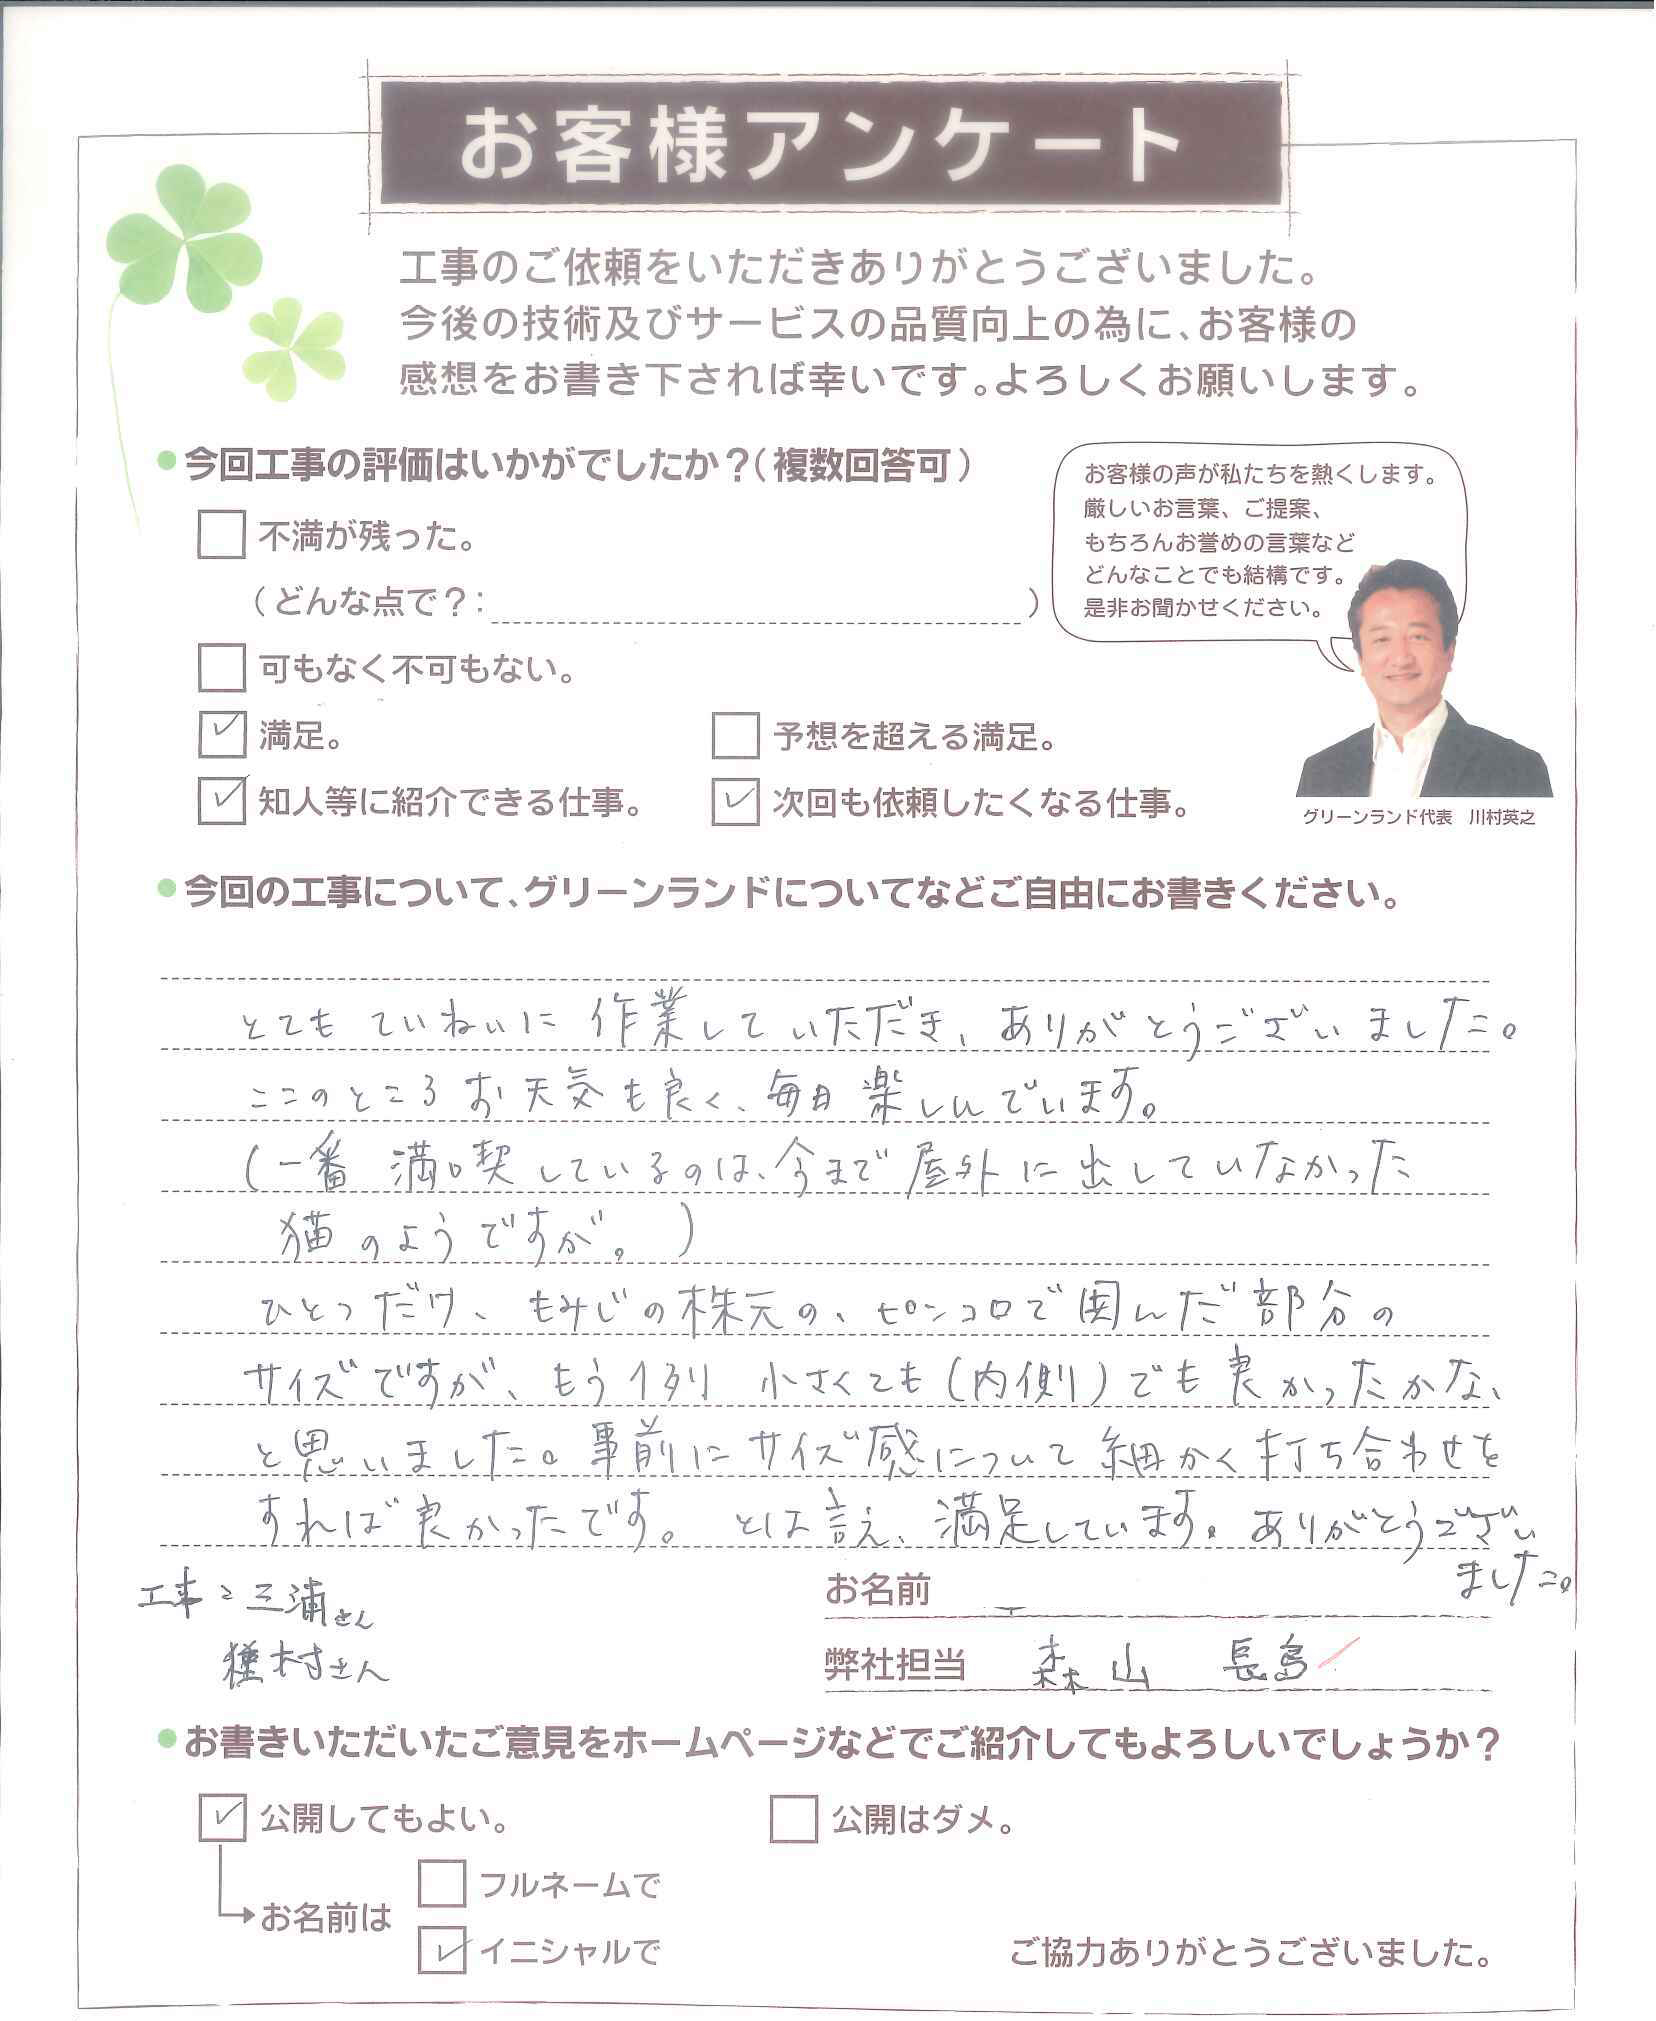 お客様アンケート
工事のご依頼をいただきありがとうございました。
今後の技術及びサービスの品質向上の為に、お客様の
感想をお書き下されば幸いです。よろしくお願いします。
今回工事の評価はいかがでしたか？（複数回答可）
お客様の声が私たちを熱くします。
厳しいお言葉、ご提案、
もちろんお誉めの言葉など
どんなことでも結構です。
是非お聞かせください。
不満が残った。
（どんな点で？：　）
可もなく不可もない。
満足。
予想を超える満足。
知人等に紹介できる仕事。
次回も依頼したくなる仕事。
グリーンランド代表　川村英之
今回の工事について、グリーンランドについてなどご自由にお書きください。
とても ていねいに 作業して いただき、ありがとうございました。
ここのところ お天気も良く、毎日楽しんでいます。
（一番 満喫しているのは、今まで屋外に出していなかった
猫のようですが。）
ひとつだけ、もみじの株元の、ピンコロで囲んだ部分の
サイズですが、もう1列 小さくても（内側）でも良かったかな、
と思いました。事前にサイズ感について細かく打ち合わせを
すれば良かったです。とは言え、満足しています。ありがとうござい
ました。
工事：三浦さん
種村さん
お名前
弊社担当　森山　長島
お書きいただいたご意見をホームページなどでご紹介してもよろしいでしょうか？
公開してもよい。
公開はダメ。
お名前は
フルネームで
イニシャルで
ご協力ありがとうございました。